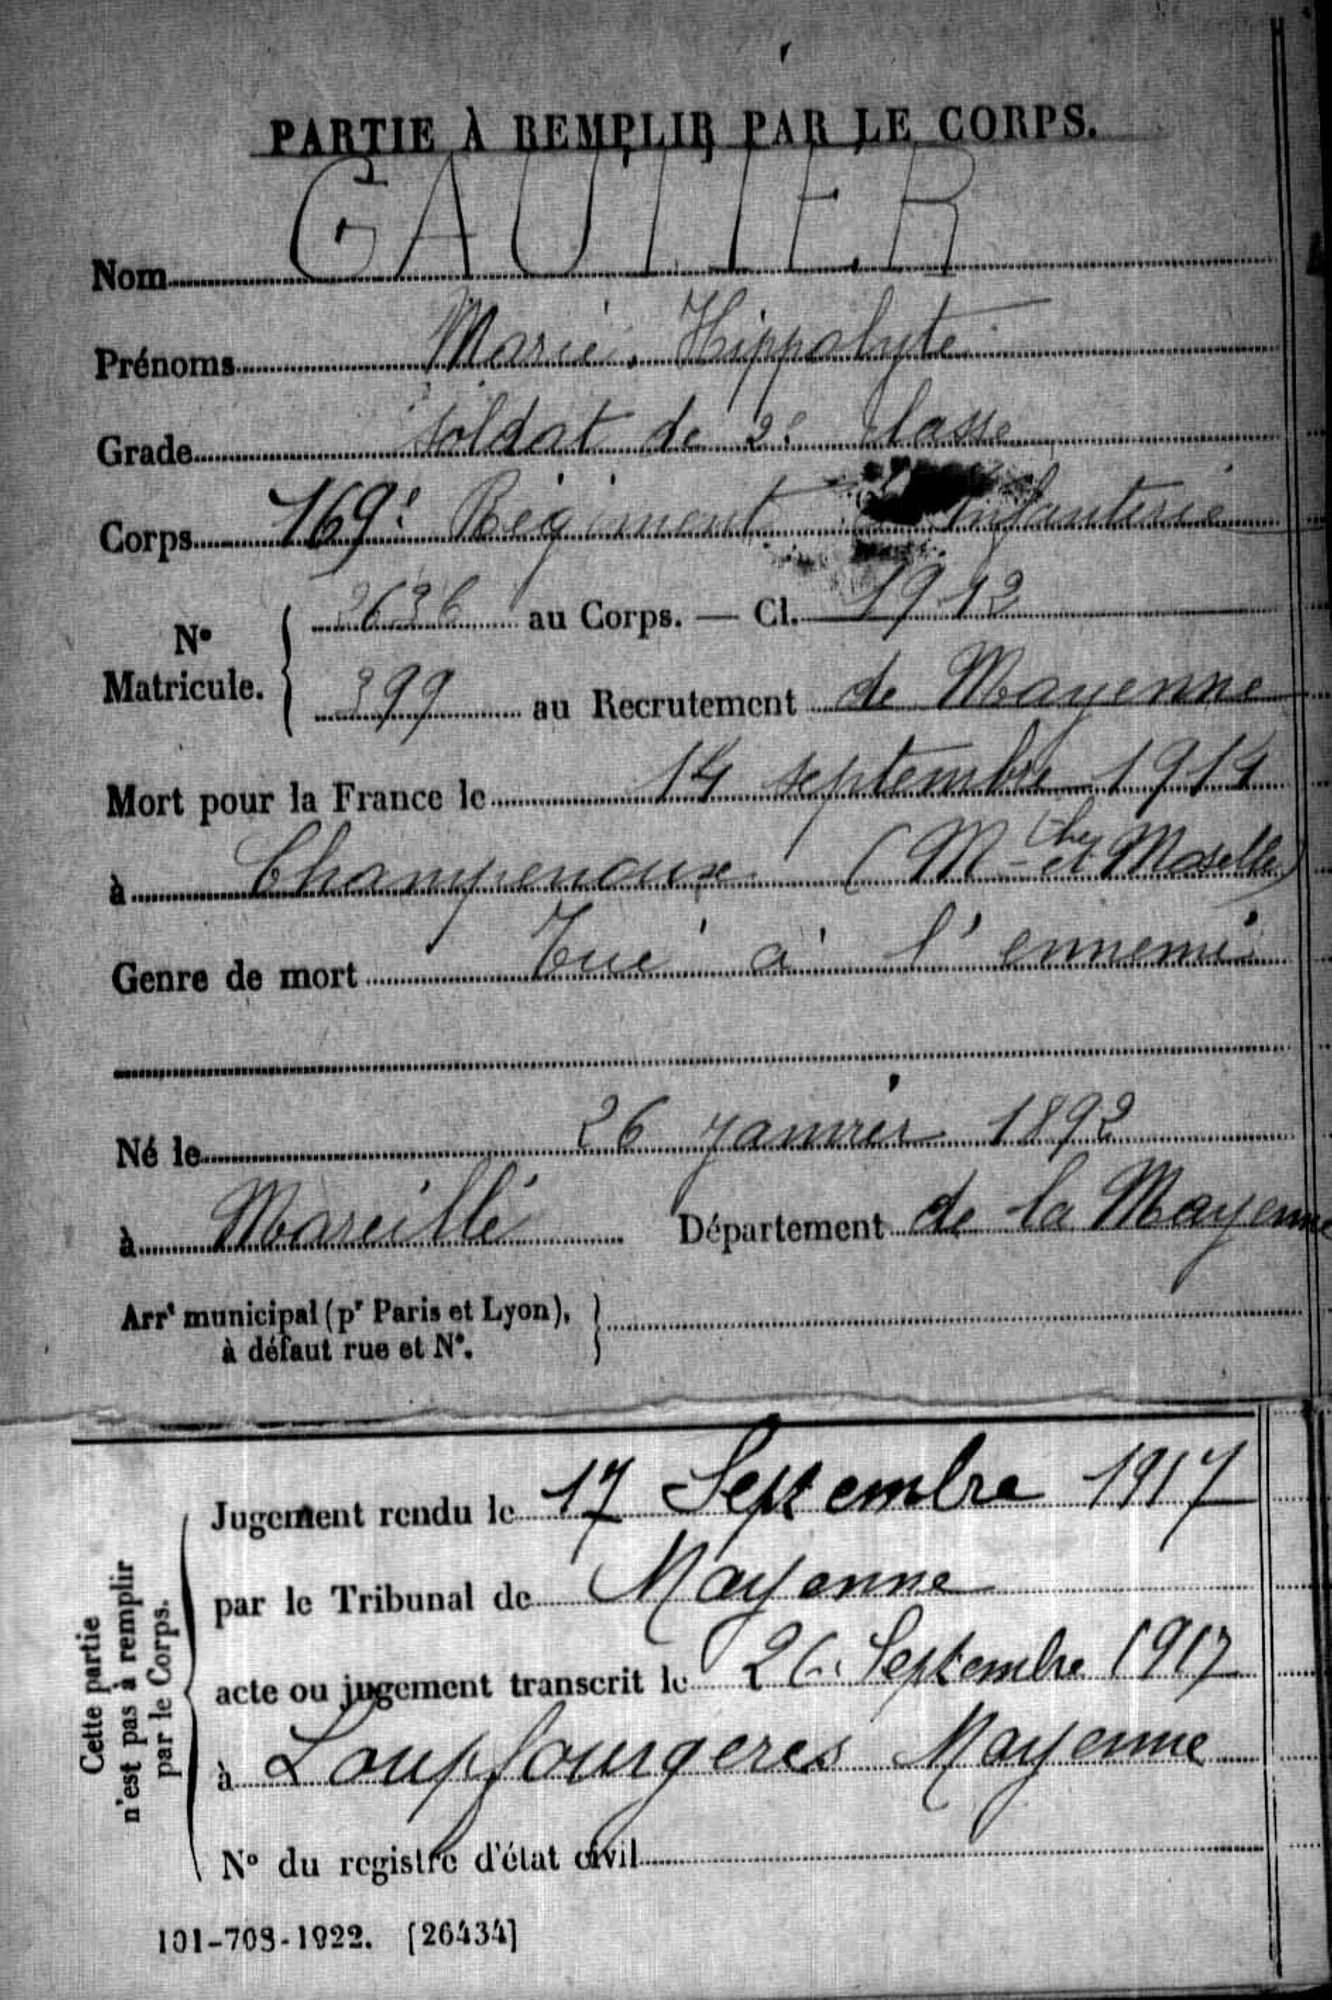 PARTIE À REMPLIR PAR LE CORPS.
Nom GAUTIER
Prénoms Marie, Hippolyte
Grade soldat de 2e classe
Corps 169e Régiment Infanterie
2636 au Corps. — Cl. 1912
N° Matricule.
399 au Recrutement de Mayenne
Mort pour la France le 14 septembre 1914
à Champenoux (Mthe et Moselle)
Genre de mort Tué à l'ennemi
Né le 26 janvier 1892
à Mareillé Département de la Mayenne
Arrt municipal (pr Paris et Lyon),
à défaut rue et N°.
Jugement rendu le 17 Septembre 1917
par le Tribunal de Mayenne
acte ou jugement transcrit le 26 Septembre 1917
à Loupfougeres Mayenne
N° du registre d'état civil
Cette partie
n'est pas à remplir
par le Corps.
101-708-1922. [26434]